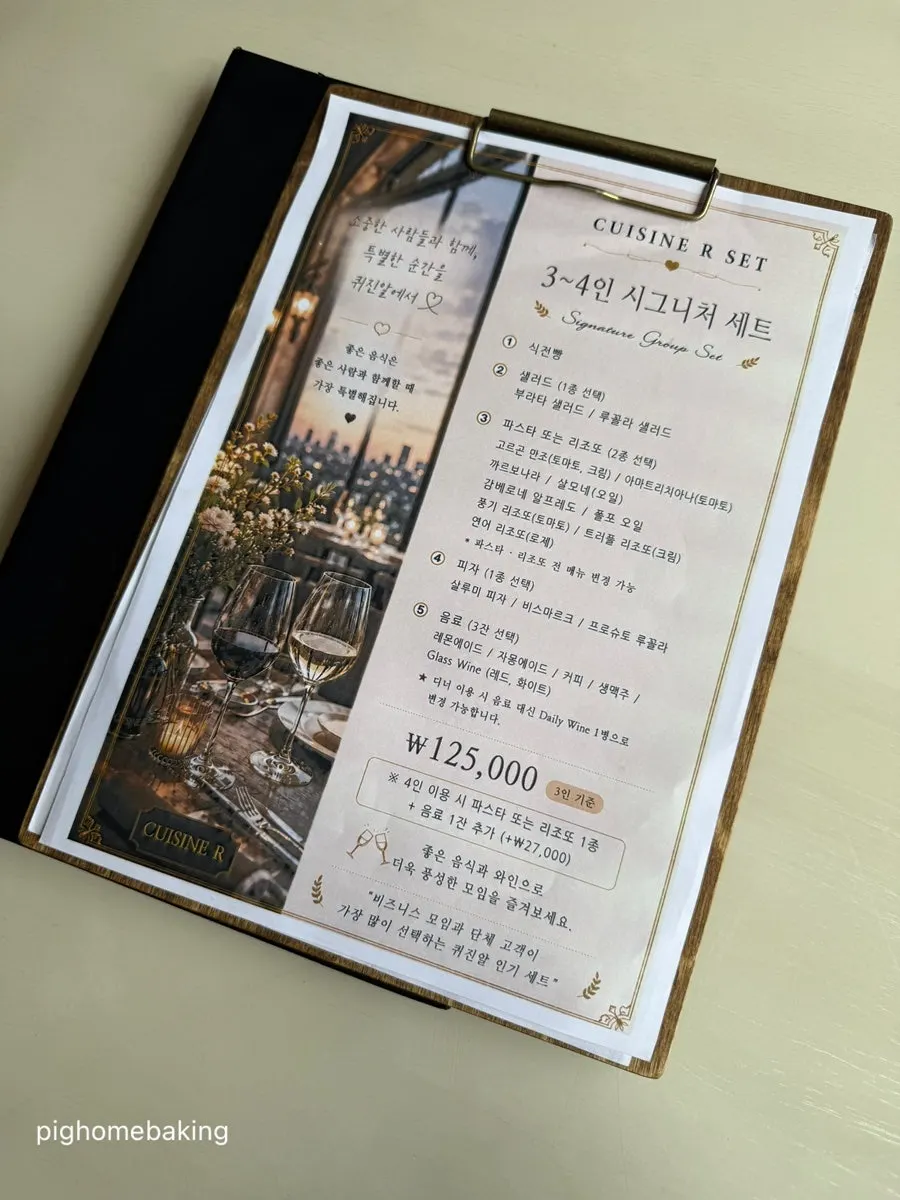 소중한 사람들과 함께,
특별한 순간을
퀴진알에서 ♡
좋은 음식은
좋은 사람과 함께할 때
가장 특별해집니다.
CUISINE R
CUISINE R SET
3~4인 시그니처 세트
Signature Group Set
① 식전빵
② 샐러드 (1종 선택)
부라타 샐러드 / 루꼴라 샐러드
③ 파스타 또는 리조또 (2종 선택)
고르곤 만조(토마토, 크림) / 아마트리치아나(토마토)
까르보나라 / 살모네(오일)
감베로네 알프레도 / 풀포 오일
풍기 리조또(토마토) / 트러플 리조또(크림)
연어 리조또(로제)
* 파스타 · 리조또 전 메뉴 변경 가능
④ 피자 (1종 선택)
살루미 피자 / 비스마르크 / 프로슈토 루꼴라
⑤ 음료 (3잔 선택)
레몬에이드 / 자몽에이드 / 커피 / 생맥주 /
Glass Wine (레드, 화이트)
★ 디너 이용 시 음료 대신 Daily Wine 1병으로
변경 가능합니다.
₩125,000 3인 기준
※ 4인 이용 시 파스타 또는 리조또 1종
+ 음료 1잔 추가 (+₩27,000)
좋은 음식과 와인으로
더욱 풍성한 모임을 즐겨보세요.
"비즈니스 모임과 단체 고객이
가장 많이 선택하는 퀴진알 인기 세트"
pighomebaking